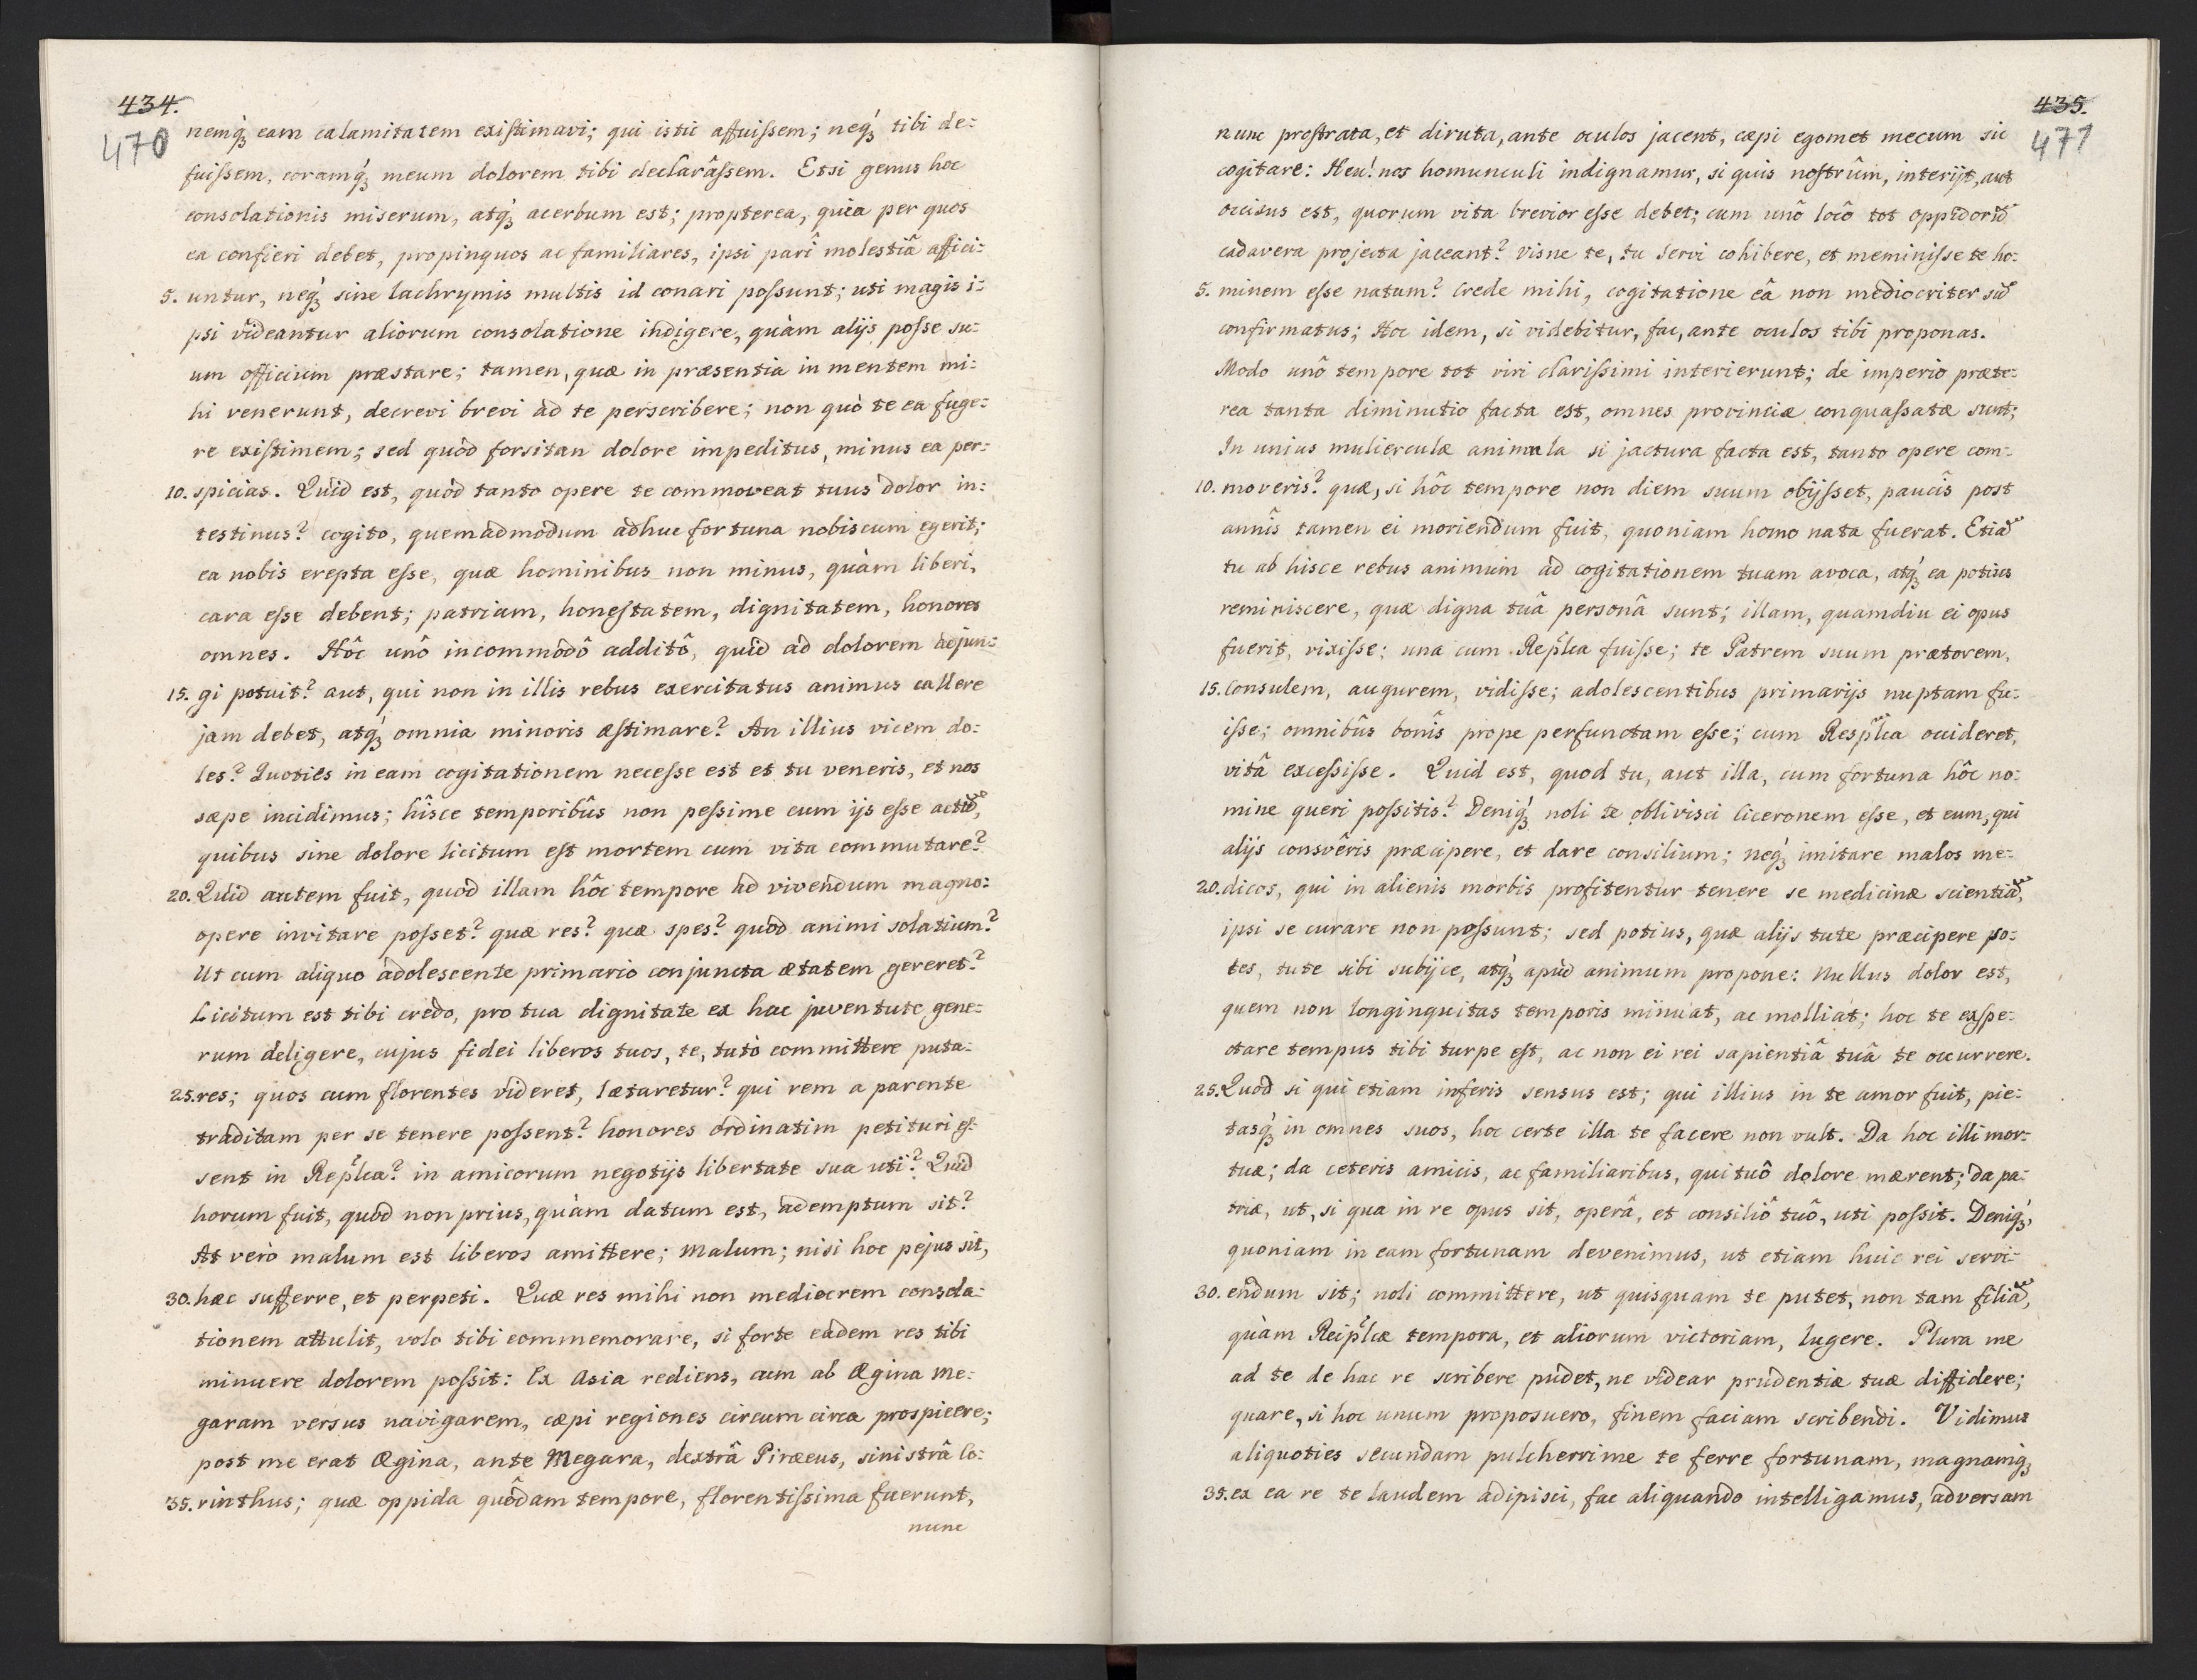 434.
470
nemq́ꝫ eam calamitatem existimavi; qui istic affuissem; neq́ꝫ tibi de:
fuissem, coramq́ꝫ meum dolorem tibi declarâssem. Etsi genus hoc
consolationis miserum, atq́ꝫ acerbum est; propterea, quia per quos
ea confieri debet, propinquos ac familiares, ipsi parî molestiâ affici:
5. untur, neq́ꝫ sine lachrymis multis id conari possunt; uti magis i:
psi videantur aliorum consolatione indigere, quàm alijs posse su:
um officium præstare; tamen, quæ in præsentia in mentem mi:
hi venerunt, decrevi brevi ad te perscribere; non quò te ea fuge:
re existimem; sed quòd forsitan dolore impeditus, minus ea per:
10. spicias. Quid est, quòd tanto opere te commoveat tuus dolor in:
testinus? cogito, quemadmodum adhuc fortuna nobiscum egerit;
ea nobis erepta esse, quæ hominibus non minus, quàm liberi,
cara esse debent; patriam, honestatem, dignitatem, honores
omnes. Hôc unô incommodô additô, quid ad dolorem adjun:
15. gi potuit? aut, qui non in illis rebus exercitatus animus callere
jam debet, atq́ꝫ omnia minoris æstimare? An illius vicem do:
les? Quoties in eam cogitationem necesse est et tu veneris, et nos
sæpe incidimus; hîsce temporibûs non pessime cum ijs esse actũ,
quibus sine dolore licitum est mortem cum vita commutare?
20. Quid autem fuit, quod illam hôc tempore ad vivendum magno:
opere invitare posset? quæ res? quæ spes? quod animi solatium?
Ut cum aliquo adolescente primario conjuncta ætatem gereret?
Licitum est tibi credo, pro tua dignitate ex hac juventute gene:
rum deligere, cujus fidei liberos tuos, te, tutò committere puta:
25. res; quos cum florentes videret, lætaretur? qui rem a parente
traditam per se tenere possent? honores ordinatim petituri es:
sent in Rep̃lca? in amicorum negotijs libertate sua uti? Quid
horum fuit, quod non prius, quàm datum est, ademptum sit?
At verò malum est liberos amittere; Malum; nisi hoc pejus sit,
30. hæc sufferre, et perpeti. Quæ res mihi non mediocrem consola:
tionem attulit, volo tibi commemorare, si forte eadem res tibi
minuere dolorem possit: Ex Asia rediens, cum ab Ægina Me:
garam versus navigarem, cæpi regiones circum circa prospicere;
post me erat Ægina, ante Megara, dextrâ Piræeus, sinistrâ Co:
35. rinthus; quæ oppida quôdam tempore, florentissima fuerunt,
nunc
435.
471
nunc prostrata, et diruta, ante oculos jacent, cæpi egomet mecum sic
cogitare: Heu! nos homunculi indignamur, si quis nostrûm, interijt, aut
occisus est, quorum vita brevior esse debet; cum unô locô tot oppidorũ
cadavera projecta jaceant? visne te, tu Servi cohibere, et meminisse te ho:
5. minem esse natum? Crede mihi, cogitatione eâ non mediocriter sũ
confirmatus; Hoc idem, si videbitur, fac, ante oculos tibi proponas.
Modo unô tempore tot viri clarissimi interierunt; de imperio præte:
rea tanta diminutio facta est, omnes provinciæ conquassatæ sunt;
In unius mulierculæ animula si jactura facta est, tanto opere com:
10. moveris? quæ, si hôc tempore non diem suum obijsset, paucîs post
annîs tamen ei moriendum fuit, quoniam homo nata fuerat. Etiã
tu ab hisce rebus animum ad cogitationem tuam avoca, atq́ꝫ ea potius
reminiscere, quæ digna tuâ personâ sunt; illam, quamdiu ei opus
fuerit, vixisse; una cum Rep̃lca fuisse; te Patrem suum prætorem,
15. Consulem, augurem, vidisse; adolescentibus primarijs nuptam fu:
isse; omnibûs bonîs prope perfunctam esse; cum Resp̃lca occideret,
vitâ excessisse. Quid est, quod tu, aut illa, cum fortuna hôc no:
mine queri possitis? Deniq́ꝫ noli te oblivisci Ciceronem esse, et eum, qui
alijs consvêris præcipere, et dare consilium; neq́ꝫ imitare malos me:
20. dicos, qui in alienis morbis profitentur tenere se medicinæ scientiã,
ipsi se curare non possunt; sed potius, quæ alijs tute præcipere po:
tes, tute sibi subijce, atq́ꝫ apud animum propone: Nullus dolor est,
quem non longinquitas temporis minuat, ac molliat; hoc te expe:
ctare tempus tibi turpe est, ac non ei rei sapientiâ tuâ te occurrere.
25. Quod si qui etiam inferis sensus est; qui illius in te amor fuit, pie:
tasq́ꝫ in omnes suos, hoc certe illa te facere non vult. Da hoc illi mor:
tuæ; da ceteris amicis, ac familiaribus, qui tuô dolore mærent; da pa:
triæ, ut, si qua in re opus sit, operâ, et consiliô tuô, uti possit. Deniq́ꝫ,
quoniam in eam fortunam devenimus, ut etiam huic rei servi:
30. endum sit; noli committere, ut quisquam te putet, non tam filiã,
quàm Reip̃lcæ tempora, et aliorum victoriam, lugere. Plura me
ad te de hac re scribere pudet, ne videar prudentiæ tuæ diffidere;
quare, si hoc unum proposuero, finem faciam scribendi. Vidimus
aliquoties secundam pulcherrime te ferre fortunam, magnamq́ꝫ
35. ex ea re te laudem adipisci, fac aliquando intelligamus, adversam